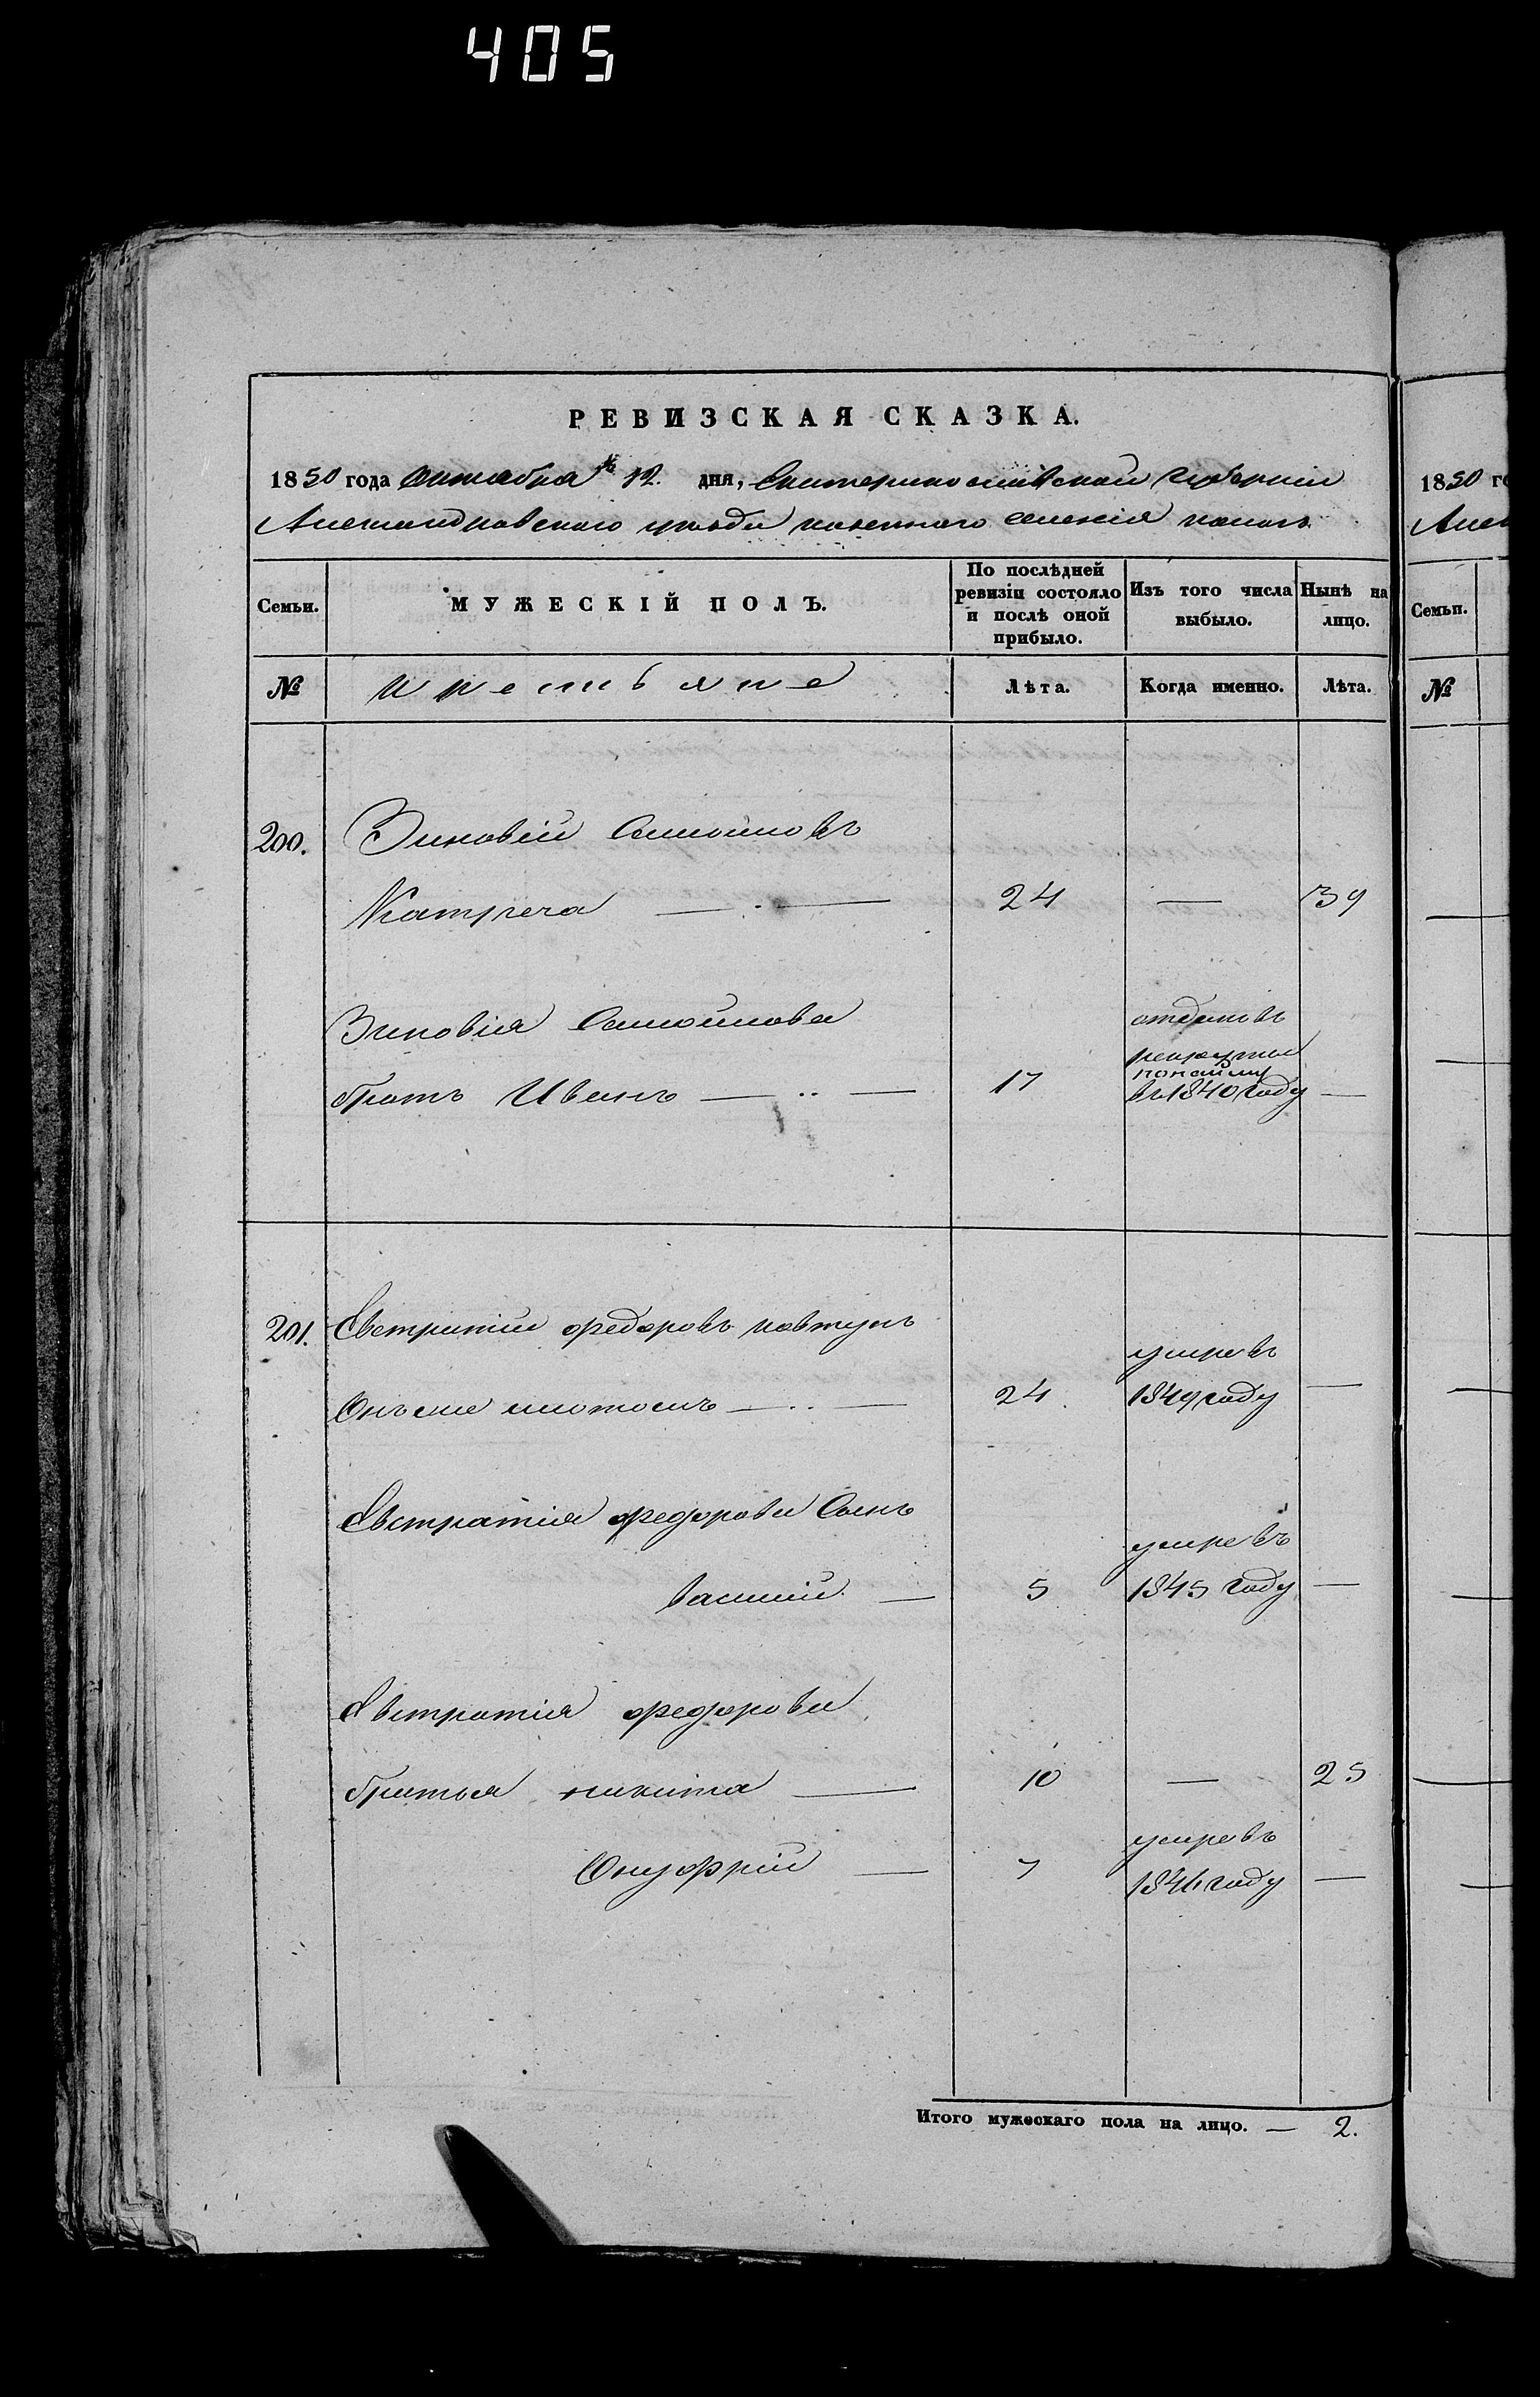 405
РЕВИЗСКАЯ СКАЗКА.
1850 года октября 12. дня, Екатеринославской Губерніи
Александровского уезда казенного селенія
Семьи.
МУЖЕСКІЙ ПОЛЪ.
По послѣдней ревизіи состояло и послѣ оной прибыло.
Изъ того числа выбыло.
Нынѣ на лицо.
№
крестьяне
Лѣта.
Когда именно.
Лѣта.
200.
Зиновій Самойловъ
Катреча — 24 — 39
Зиновія Самойлова
отданъ въ
рекруты
по найму
братъ Иванъ — 17 въ 1840 году —
201. Евстратій федоровъ ковтунъ
умре въ
24 1849 году —
Евстратія федорова Сынъ
умре въ
василій — 5 1845 году —
Евстратія федорова
братья никита — 10 — 25
умре въ
Онуфрій — 7 1846 году —
Итого мужескаго пола на лицо. — 2.
1850 го
Алек
Семьи.
№